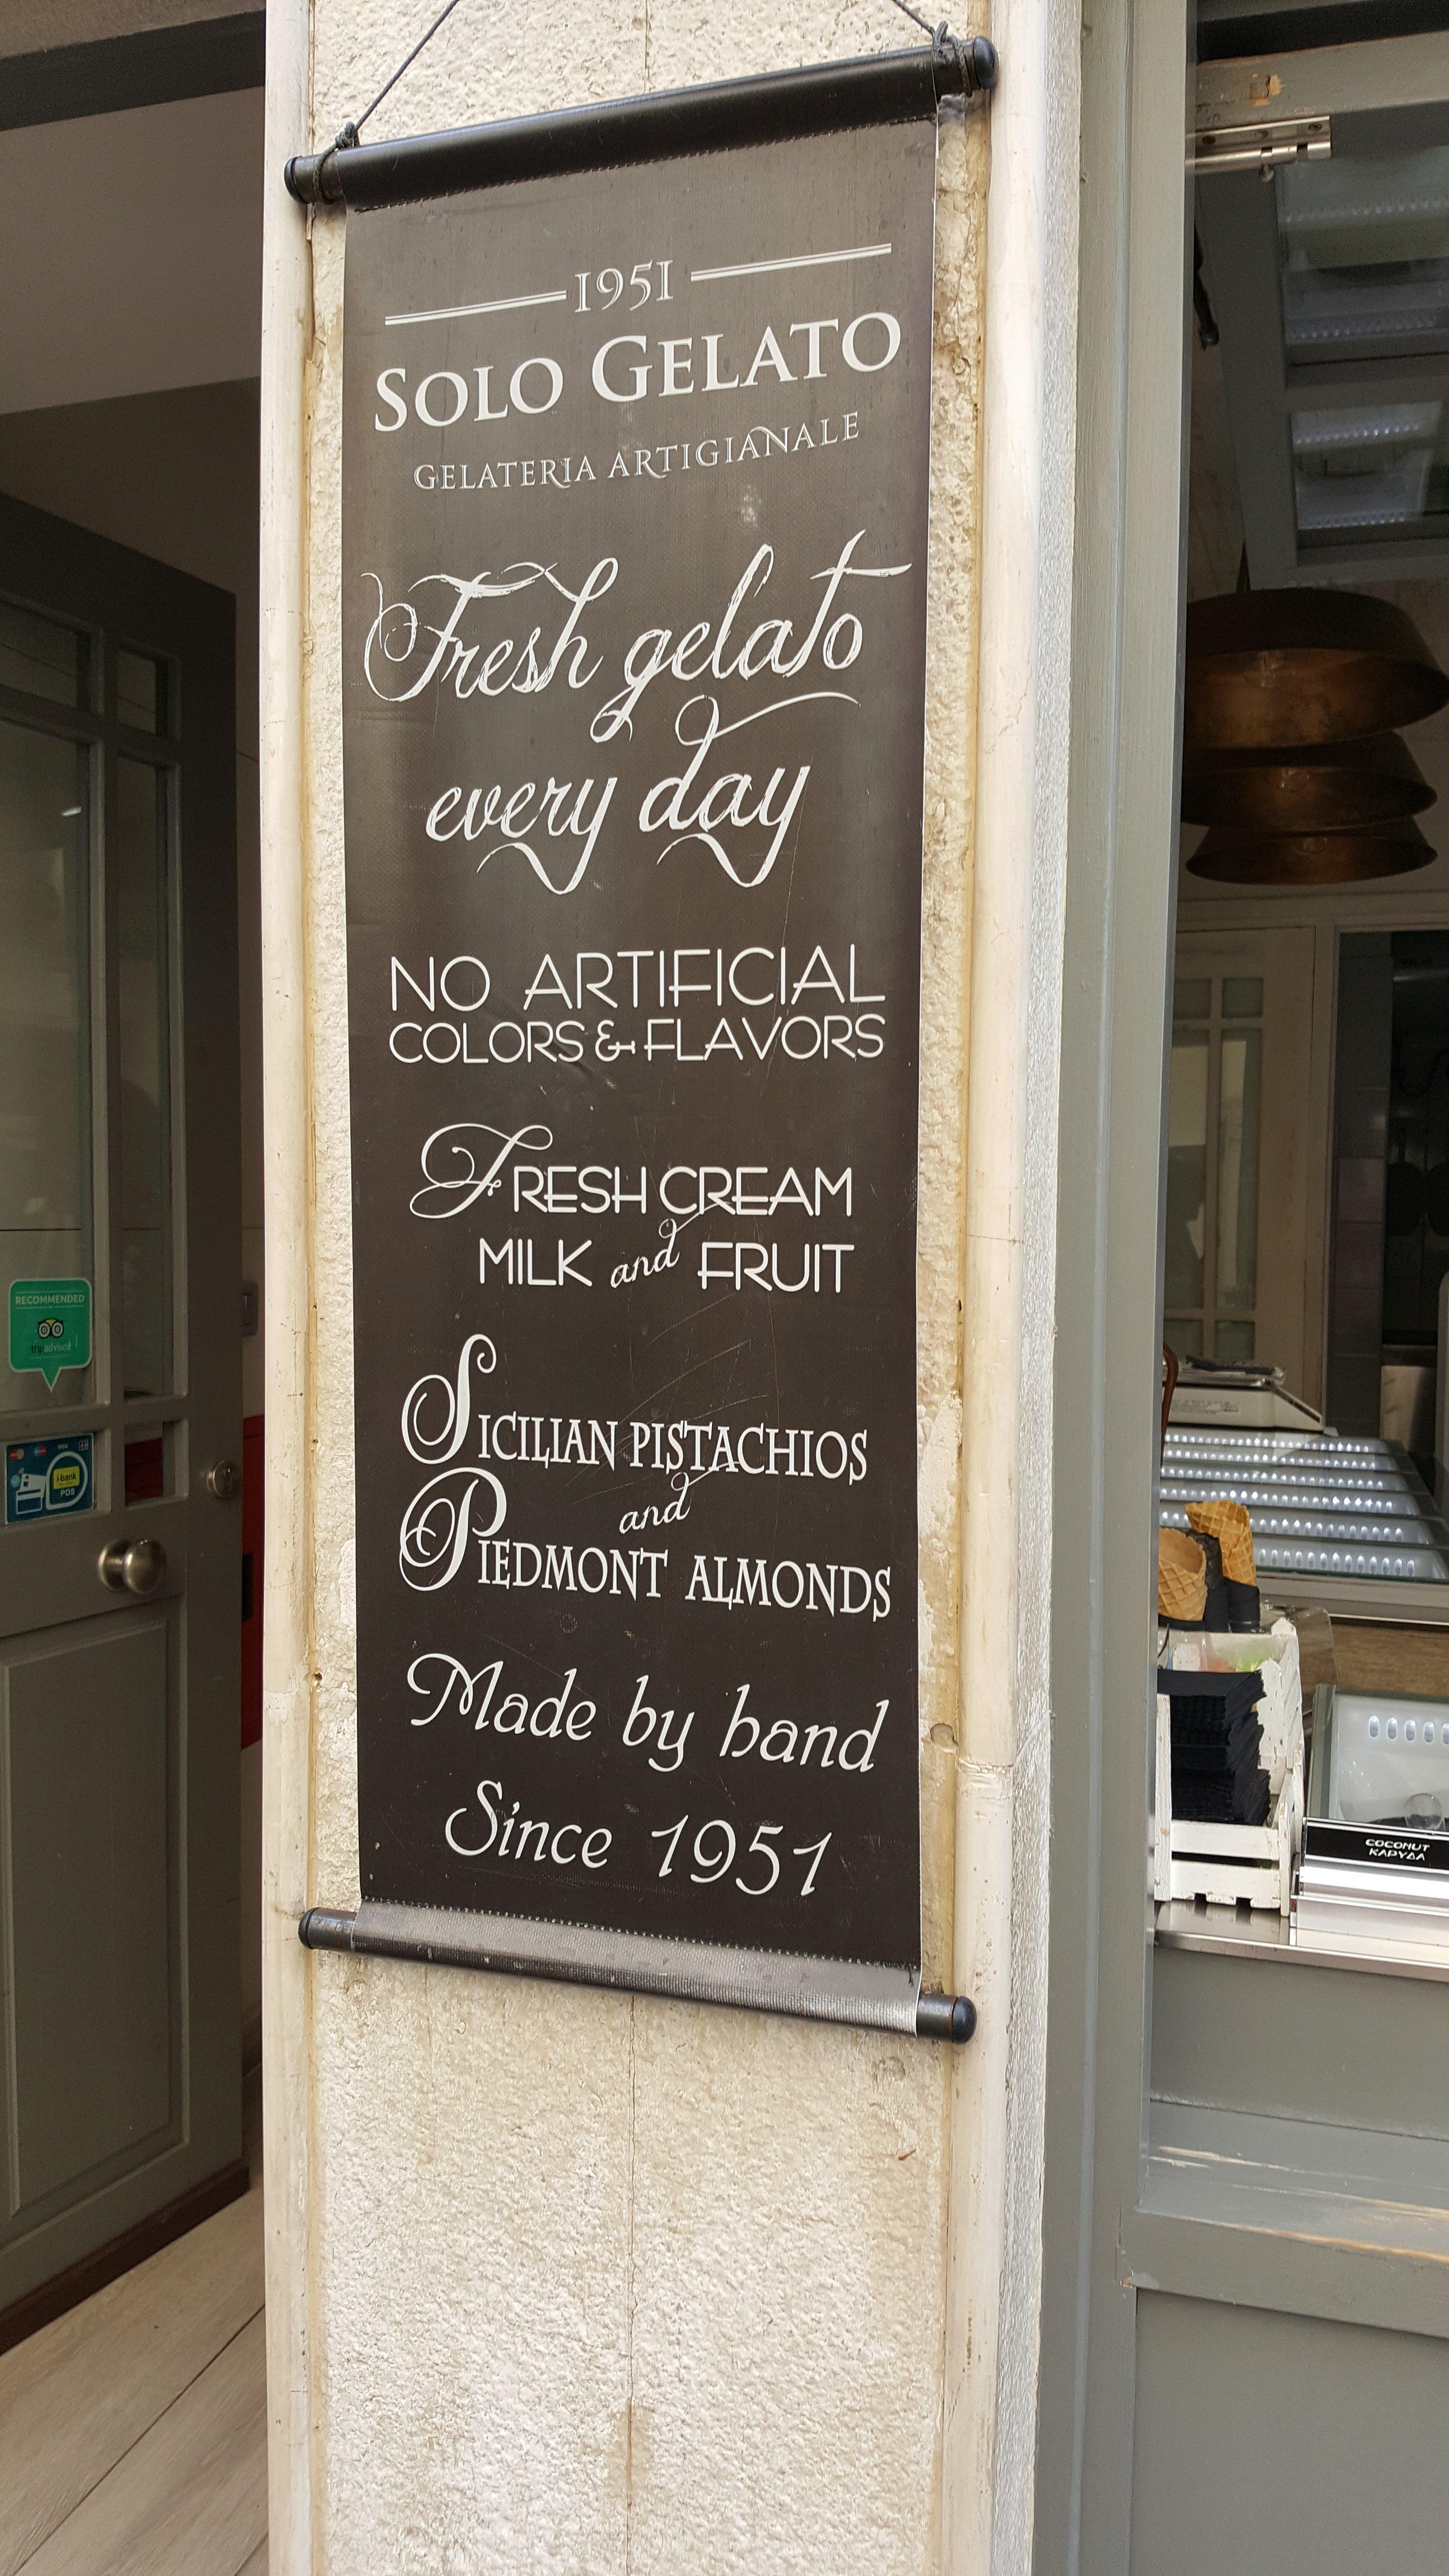 1951
SOLO GELATO
GELATERIA ARTIGIANALE
Fresh gelato
every day
NO ARTIFICIAL
COLORS & FLAVORS
FRESH CREAM
MILK and FRUIT
SICILIAN PISTACHIOS
and
PIEDMONT ALMONDS
Made by hand
Since 1951
RECOMMENDED
tripadvisor
VISA
i-bank
POS
COCONUT
ΚΑΡΥΔΑ